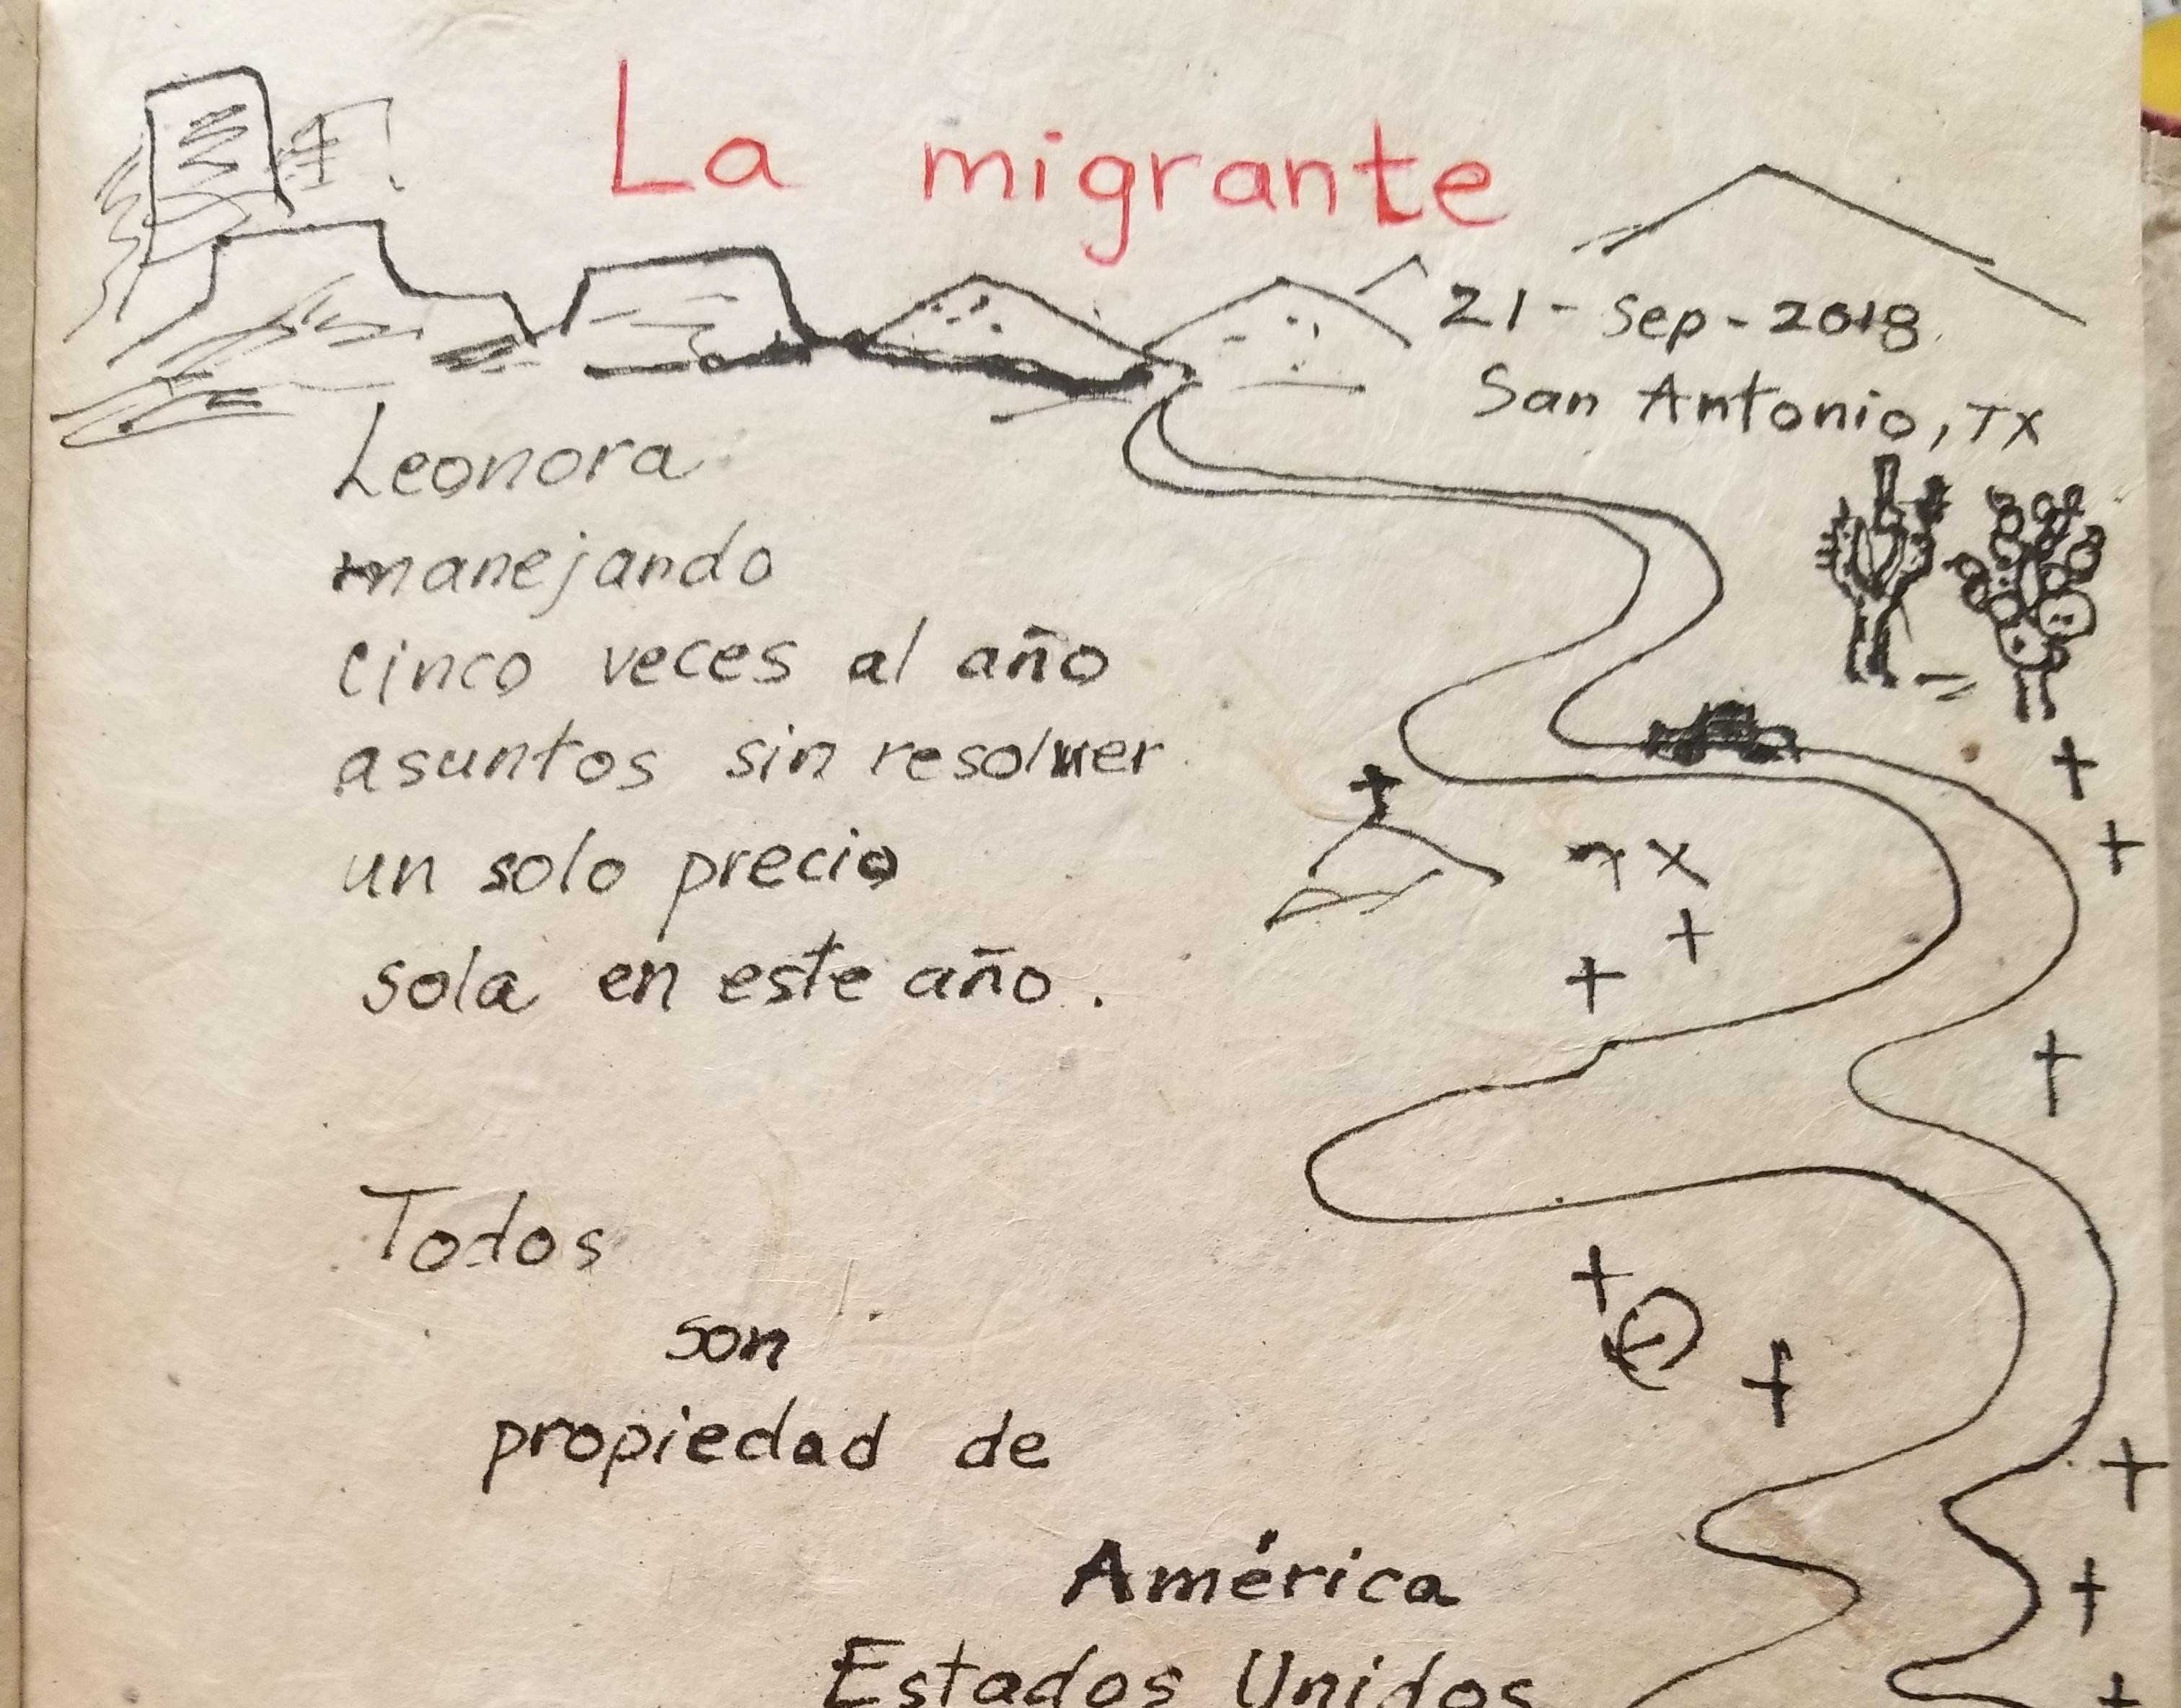 La migrante
21-Sep-2018
San Antonio, TX
Leonora
manejando
cinco veces al año
asuntos sin resolver
un solo precio
sola en este año.
Todos
son
propiedad de
América
Estados Unidos